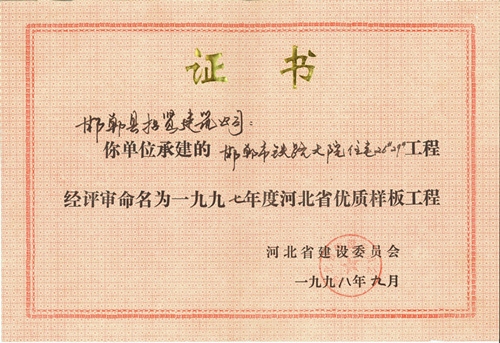 证书
邯郸县招贤建筑公司：
你单位承建的 邯郸市铁路大院住宅26#29#工程
经评审命名为一九九七年度河北省优质样板工程
河北省建设委员会
一九九八年九月